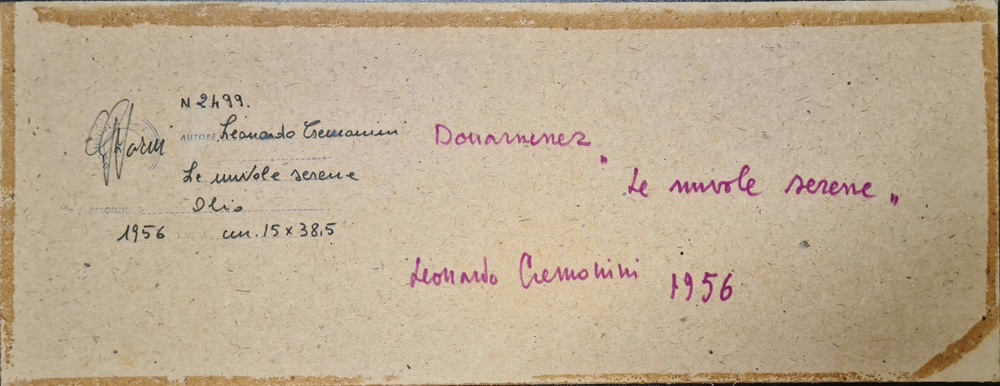 N 2499.
AUTORE Leonardo Cremonini
Le nuvole serene
Olio
1956 cm. 15 x 38,5
Douarnenez
"Le nuvole serene"
Leonardo Cremonini 1956